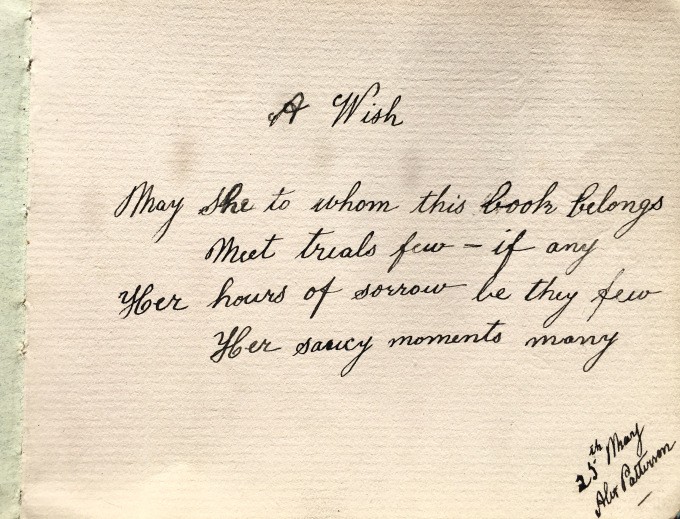 A Wish
May she to whom this book belongs
Meet trials few - if any
Her hours of sorrow be they few
Her saucy moments many
25th May
Alex Patterson